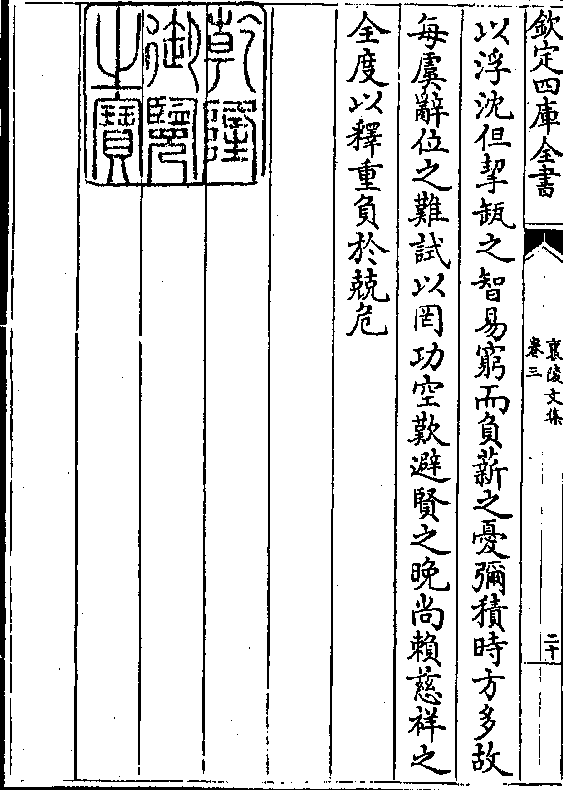 欽定四庫全書
襄陵文集
卷三
二十
以浮沈但挈缾之智易窮而負薪之憂彌積時方多故
每虞辭位之難試以罔功空歎避賢之晚尚賴慈祥之
全度以釋重負於兢危
乾隆
御覽
之寶